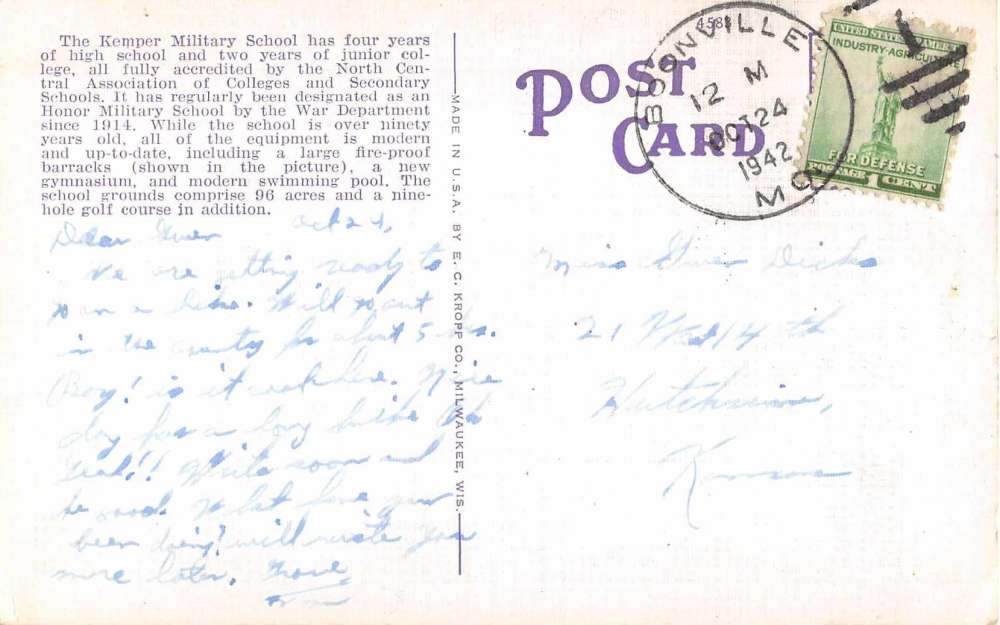 The Kemper Military School has four years
of high school and two years of junior col-
lege, all fully accredited by the North Cen-
tral Association of Colleges and Secondary
Schools. It has regularly been designated as an
Honor Military School by the War Department
since 1914. While the school is over ninety
years old, all of the equipment is modern
and up-to-date, including a large fire-proof
barracks (shown in the picture), a new
gymnasium, and modern swimming pool. The
school grounds comprise 96 acres and a nine-
hole golf course in addition.
Dear Oct 24,
We are getting ready to
on a hike. Will
in the country for about 5
Boy! is it here. Nice
day for a long hike Oh
Yeah!! Write soon and
be good. What have you
been doing? will write you
more later.
MADE IN U.S.A. BY E. C. KROPP CO., MILWAUKEE, WIS.
4583
POST
CARD
BOONVILLE
12 M
OCT 24
1942
MO
UNITED STATES OF AMERICA
INDUSTRY-AGRICULTURE
FOR DEFENSE
POSTAGE 1 CENT
Miss
21 West 14 th
Hutchinson,
Kansas